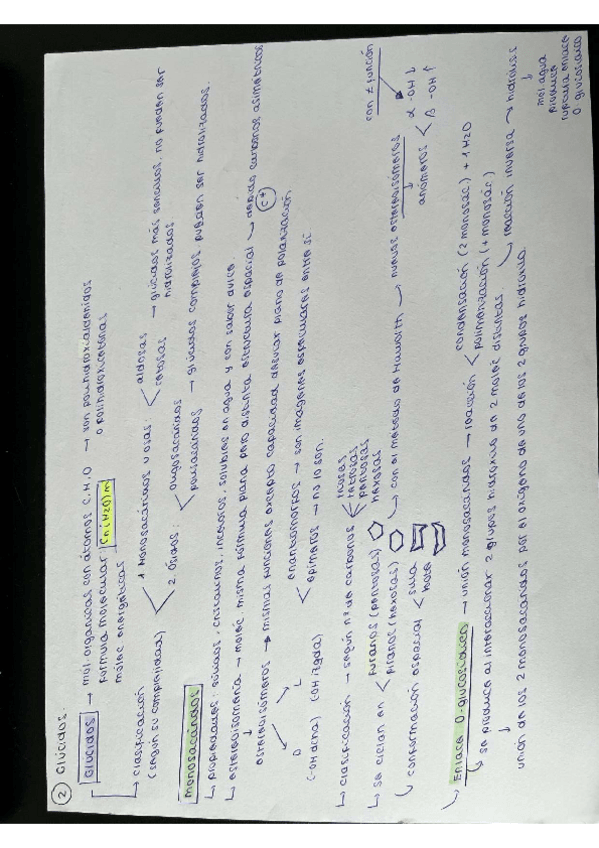 ② Glúcidos.
Glúcidos → mol. orgánicas con átomos C, H, O → son polihidroxialdehídos
fórmula molecular: Cn(H2O)n o polihidroxicetonas
moléc energéticas
→ clasificación (según su complejidad)
1 Monosacáridos u osas: aldosas → glúcidos más sencillos, no pueden ser
cetosas hidrolizados
2. Ósidos: oligosacáridos
polisacáridos → glúcidos complejos, pueden ser hidrolizados.
Monosacáridos
↳ propiedades: sólidos, cristalinos, incoloros, solubles en agua y con sabor dulce.
↳ estereoisomería → moléc misma fórmula plana pero distinta estructura espacial → debido carbonos asimétricos
C*
estereoisómeros → mismas funciones excepto capacidad desviar plano de polarización
D L
(-OH dcha) (-OH izqda)
enantiómorfos → son imágenes especulares entre sí
epímeros → no lo son.
↳ clasificación → según nº de carbonos triosas
tetrosas
pentosas
hexosas
↳ se ciclan en furanos (pentosas)
piranos (hexosas) → con el método de Haworth → nuevos estereoisómeros
↓
anómeros α -OH ↓
β -OH ↑
con ≠ función
↳ conformación espacial silla
nave
↳ Enlace O-glucosídico → unión monosacáridos → reacción condensación (2 monosác) + 1 H2O
polimerización (+ monosác)
↳ se produce al interaccionar 2 grupos hidroxilo de 2 moléc distintas.
↓
unión de los 2 monosacáridos por el oxígeno de uno de los 2 grupos hidroxilo.
↳ reacción inversa → hidrólisis
↓
mol. agua
produce
ruptura enlace
O-glucosídico